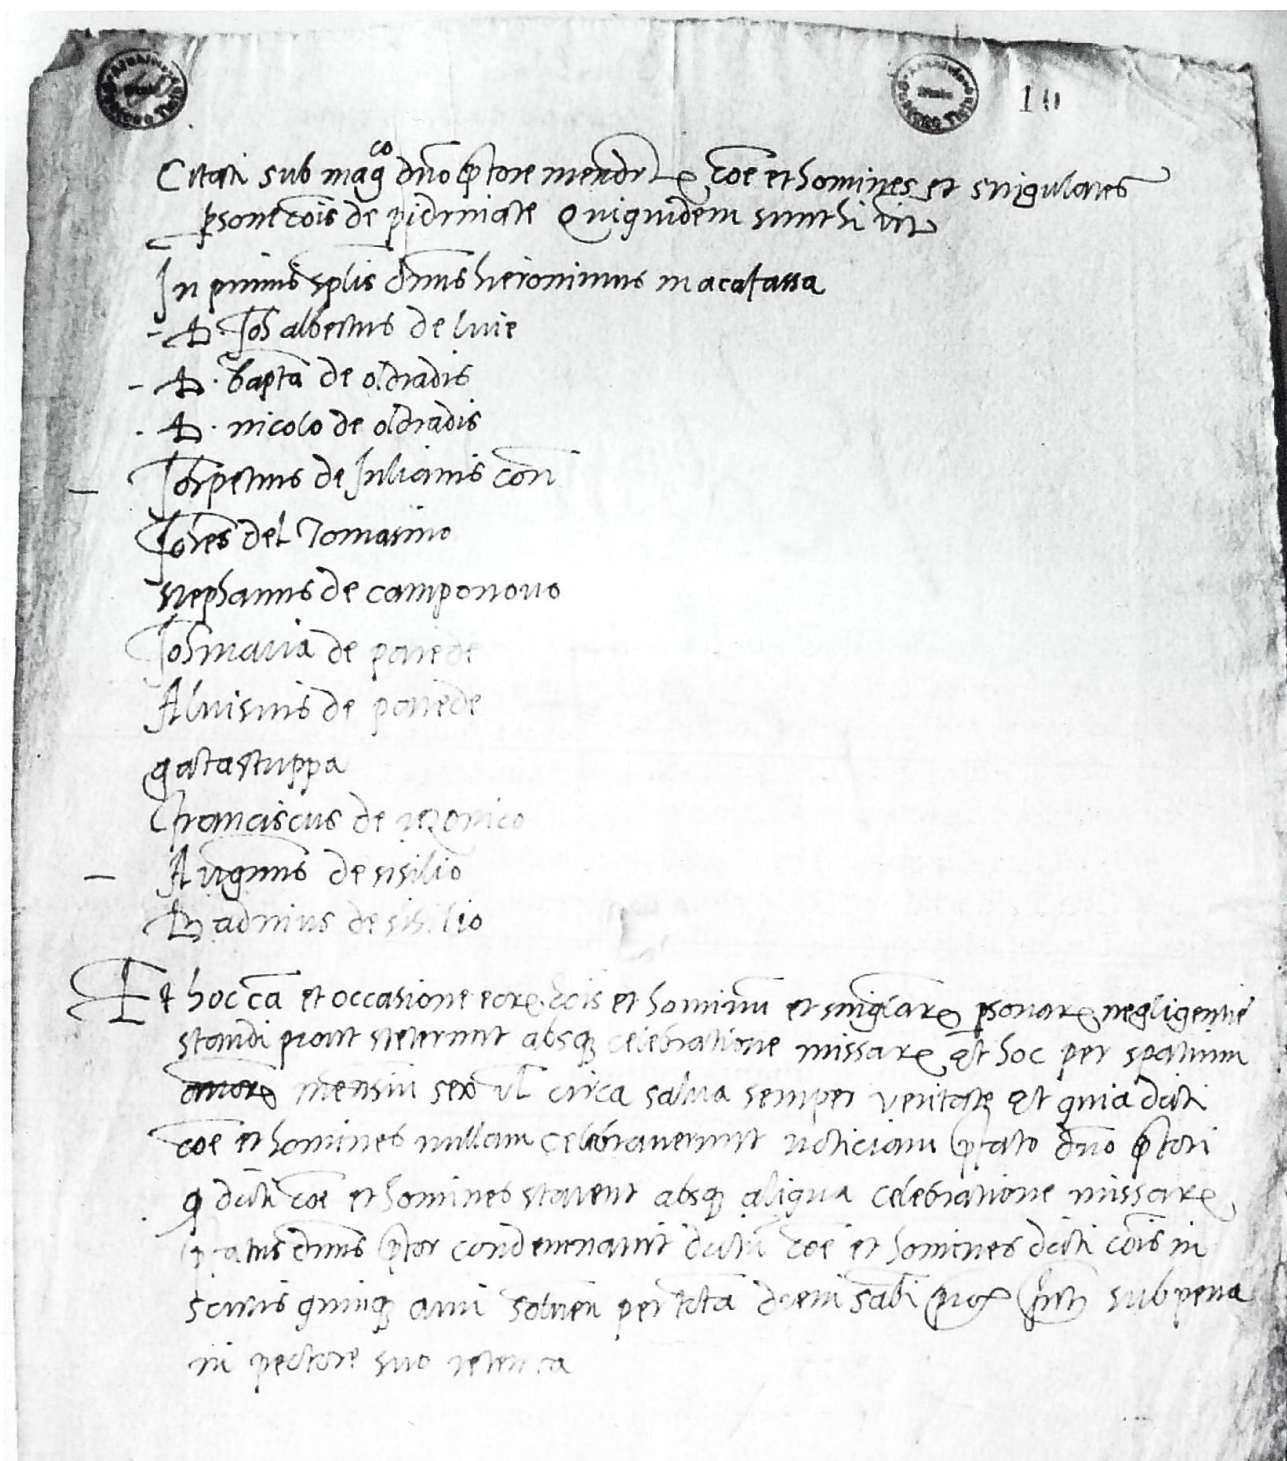 10
Citati sub magco dno ptore mendr coe et homines et singulares
psone cois de pidrinate Quiquidem sunt hi
In primis splis dnus hieronimus macacassa
- D. Joh albertus de luie
- D. bapta de oldradis
. D. nicolo de oldradis
- Joh petrus de Julianis con
Johes del Tomasino
stephanus de camponouo
Joh maria de parede
Aluisius de parede
gatastuppa
franciscus de rezonico
- Augnus de sisilio
Badinus de sisilio
Et hoc ca et occasione eor cois et hominu et singlar psonar negligentie
standi prout steterunt absq celebratione missar Et hoc per spatium
mensiu sex vl circa salua semper veritate Et quia dicti
coe et homines nullam celebrauerunt noticiam pfato dno ptori
q dicti coe et homines starent absq aliqua celebratione missar
pfatus dnus ptor condemnauit dictu coe et homines dicti cois in
scutis quinq auri soluen per tota diem sabi prox sub pena
in pectore suo retenta